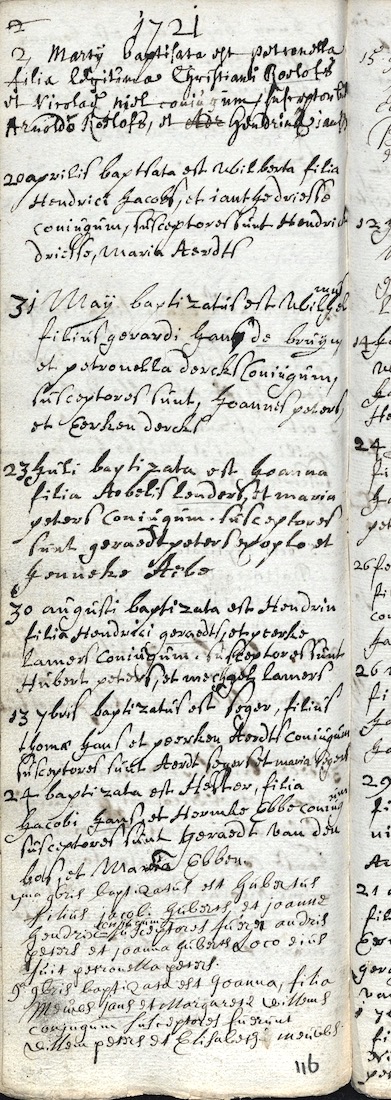 1721
2 Martÿ baptisata est petronella
filia legitima Christiani Roelofs
et Nicolaÿ niel conjugum, susceptorib
Arnoldo Roelofs, et Hendrin Jans
20 aprilis baptsata est Wilberta filia
Hendrici Jacobs, et janthedriesse
coniugum, susceptores sunt Hendric
driesse, Maria Aerdts
31 Maÿ baptizatus est Wilhel
mus
filius gerardi Jans de bruÿn
et petronella dercks Coniugum,
susceptores sunt, Joannes peters,
et Eerken dercks
23 Juli baptizata est Joanna
filia Aebelis lenders, et maria
peters coniugum. susceptores
sunt geraedt peters et
Jenneke Aebe
30 augusti baptizata est Hendrin
filia Hendrici geraedts, et peerke
lamers coniugum. susceptores sunt
Hubert peters, et mechgel lamers
13 7bris baptizatus est Seger, filius
thomæ Jans et peerken Aerdts coniugum
susceptores sunt Aerdt segers et maria segers
24 baptizata est Hester, filia
Jacobi Jans, et Hermke Ebbe coniug
um
susceptores sunt Geraedt van den
bos, et Maria Ebben
1ma 9bris baptizatus est Gubertus
filius jacobi Guberts et joanne
Hendrix conjugum susceptores fuere andris
peters et joanna Guberts Loco eius
fuit petronella peters
9 9bris baptizata est Joanna, filia
Meuwes Jans et Margareta Willems
conjugum susceptores fuerunt
Willem peters et Elisabeth meuwes
116